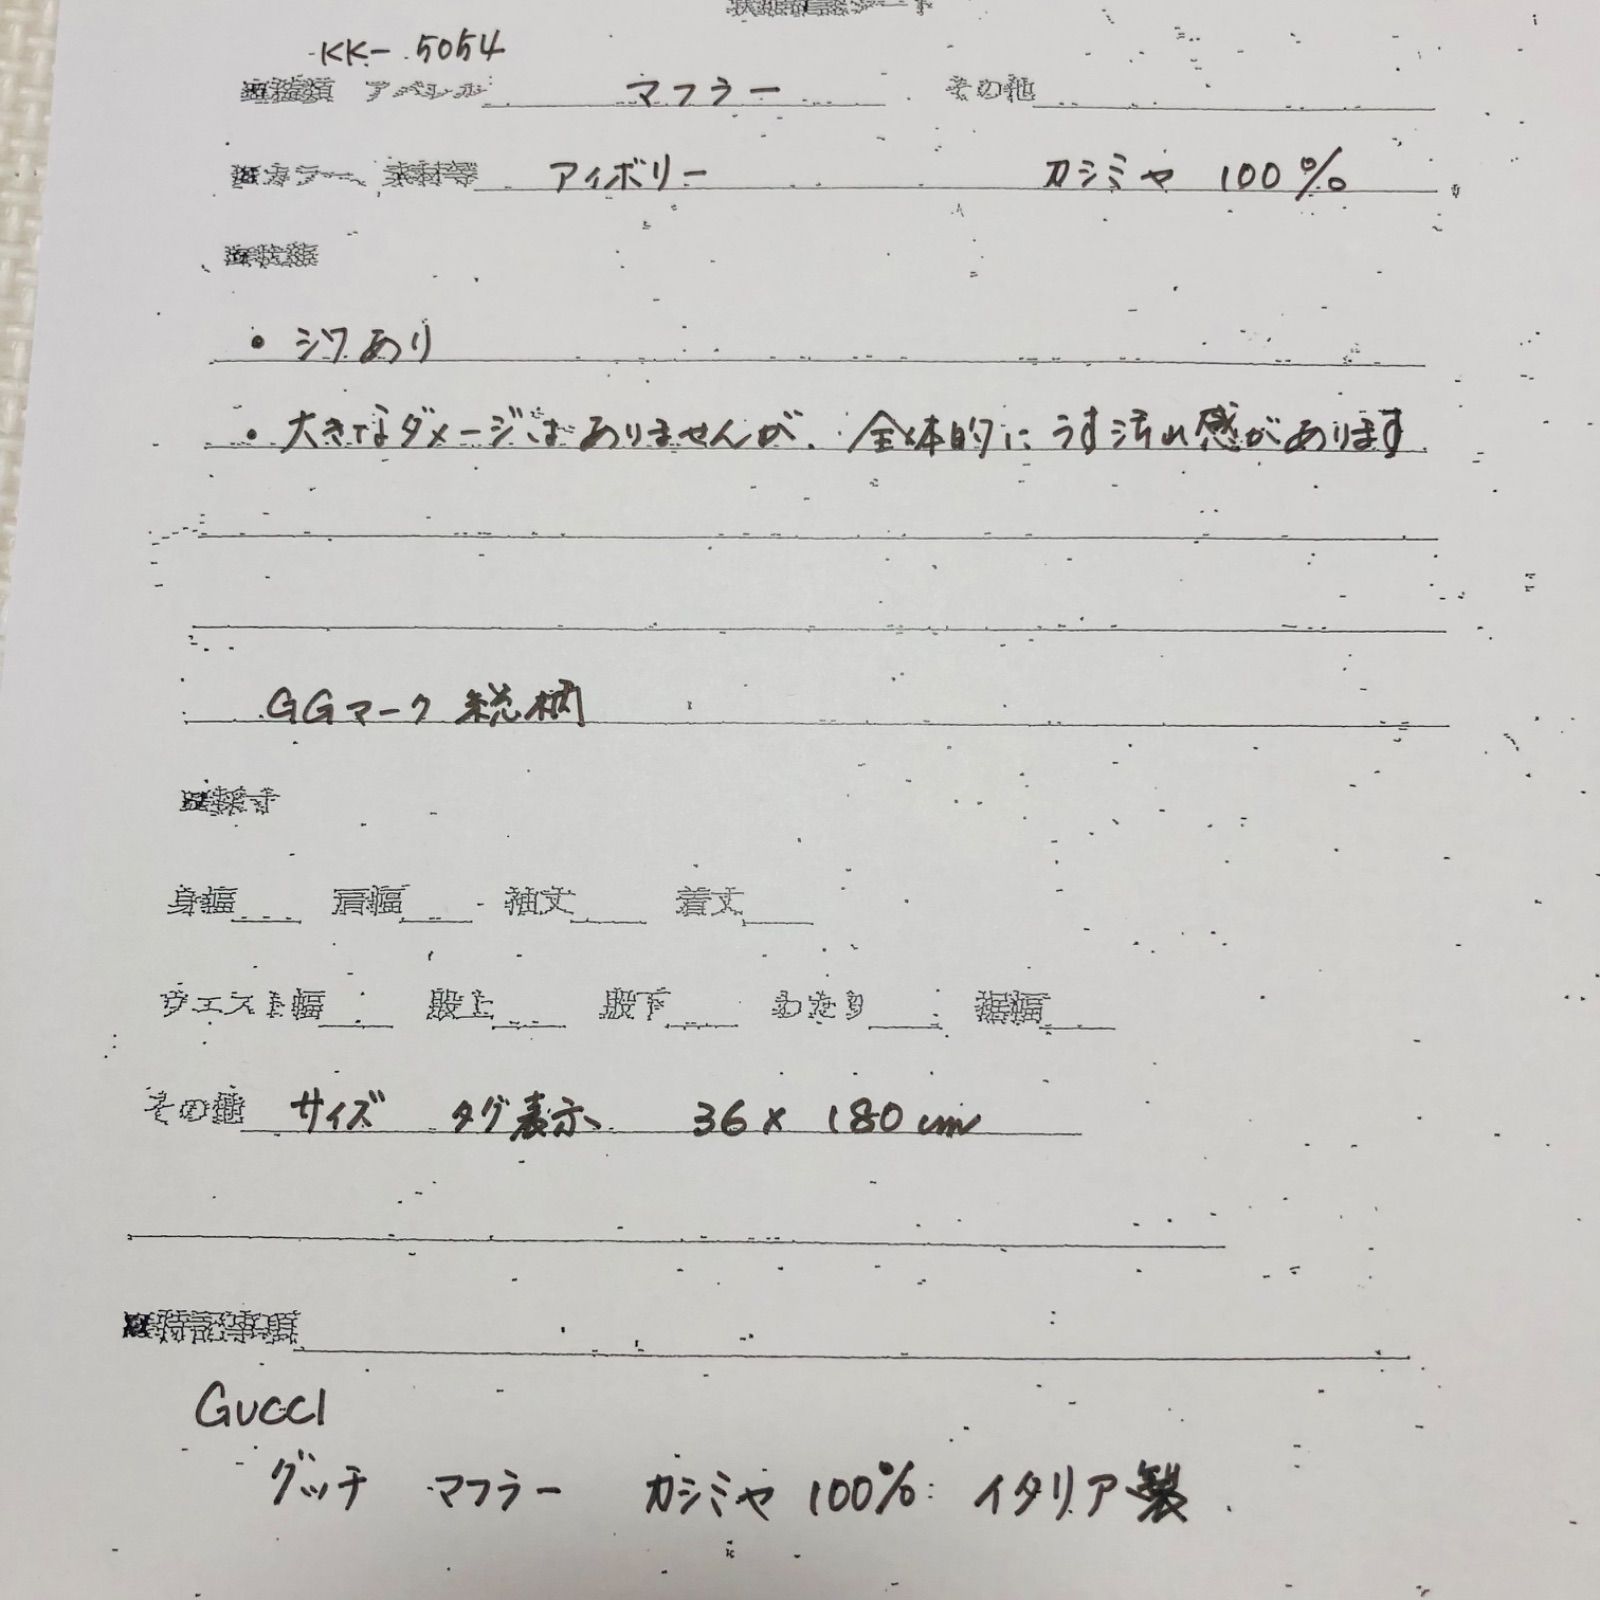 KK- 5054
■種類 アパレル マフラー その他
■カラー、素材等 アイボリー カシミヤ 100%
■状態
・シワあり
・大きなダメージはありませんが、全体的にうす汚れ感があります
GGマーク 総柄
■採寸
身幅 肩幅 袖丈 着丈
ウエスト幅 股上 股下 わたり 裾幅
その他 サイズ タグ表示 36×180cm
■特記事項
GUCCI
グッチ マフラー カシミヤ 100% イタリア製